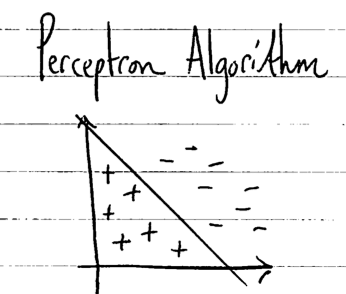 Perceptron Algorithm